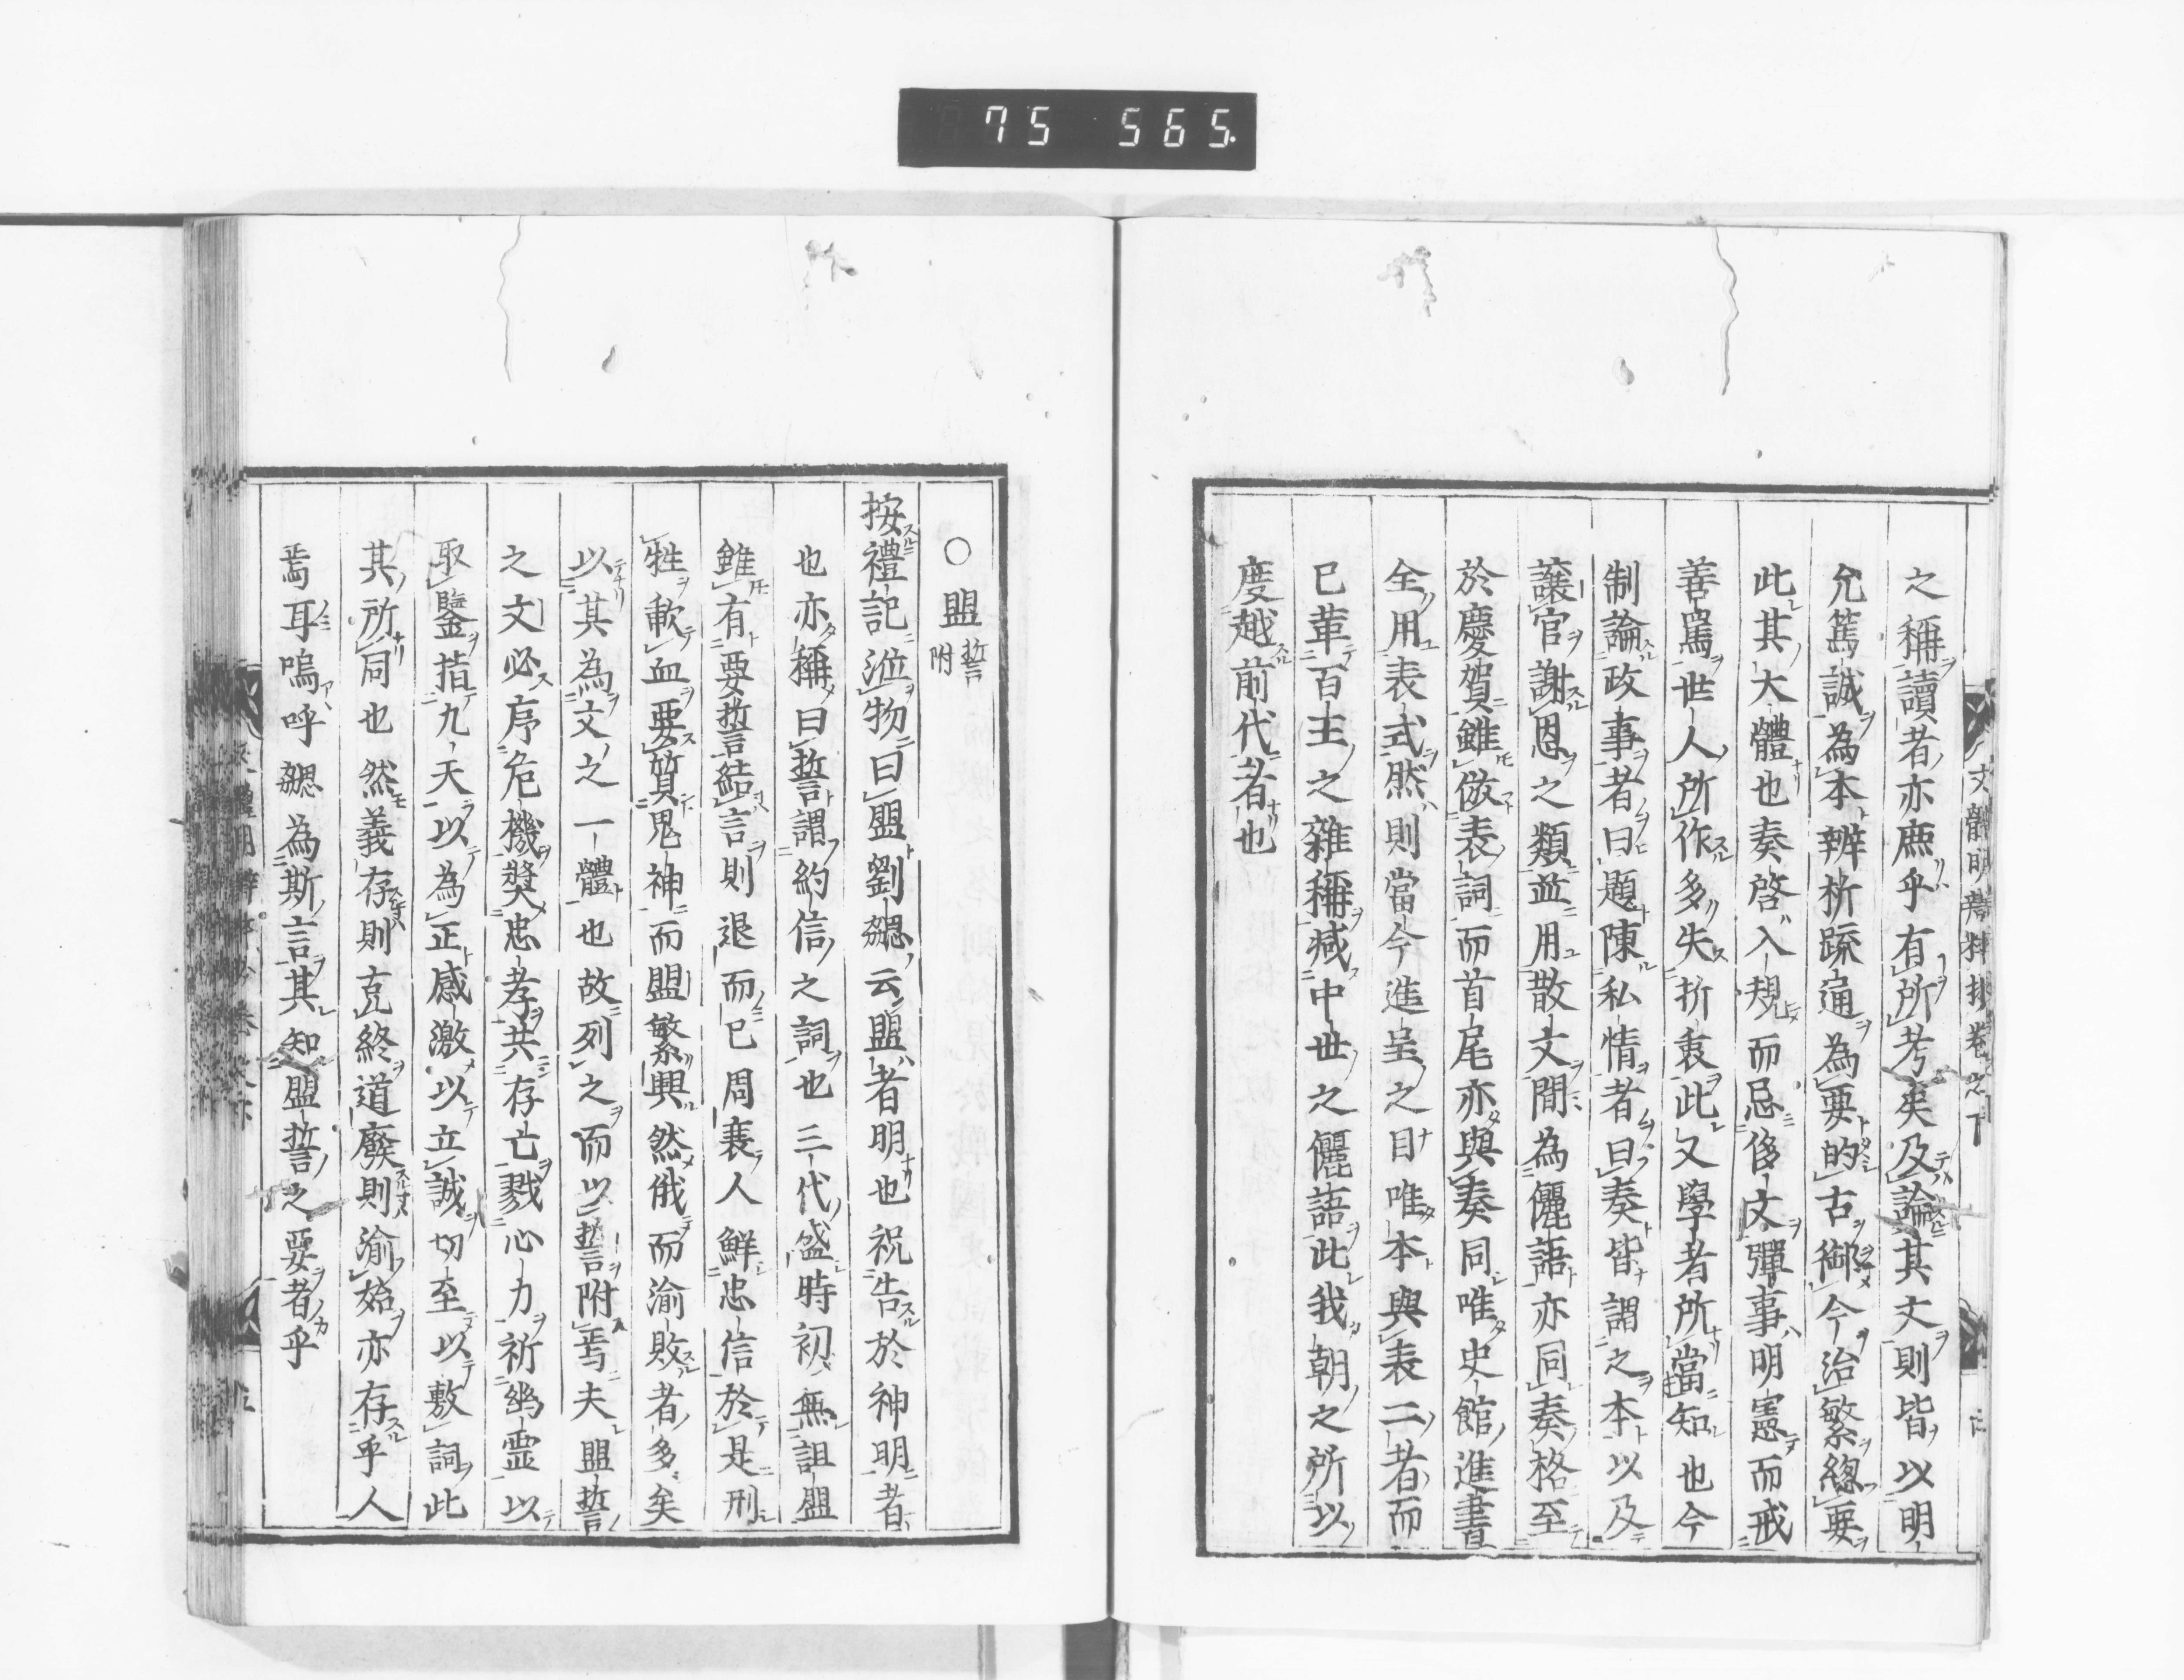 75 565.
文體明辯粹抄卷之下
之稱讀者亦庶乎有所考矣及論其文則皆以明
允篤誠為本辨析疏通為要的古御今治繁總要
此其大體也奏啓入規而忌侈文彈事明憲而戒
善罵世人所作多失折衷此又學者所當知也今
制論政事者曰題陳私情者曰奏皆謂之本以及
讓官謝恩之類並用散文間為儷語亦同奏格至
於慶賀雖倣表詞而首尾亦與奏同唯史館進書
全用表式然則當今進呈之目唯本與表二者而
已革百王之雜稱減中世之儷語此我朝之所以
度越前代者也
○盟誓附
按禮記涖物曰盟劉勰云盟者明也祝告於神明者
也亦稱曰誓謂約信之詞也三代盛時初無詛盟
雖有要誓結言則退而已周衰人鮮忠信於是刑
牲歃血要質鬼神而盟繁興然俄而渝敗者多矣
以其為文之一體也故列之而以誓附焉夫盟誓
之文必序危機獎忠孝共存亡戮心力祈幽霊以
取鑒指九天以為正感激以立誠切至以敷詞此
其所同也然義存則克終道廢則渝始亦存乎人
焉耳嗚呼勰為斯言其知盟誓之要者乎